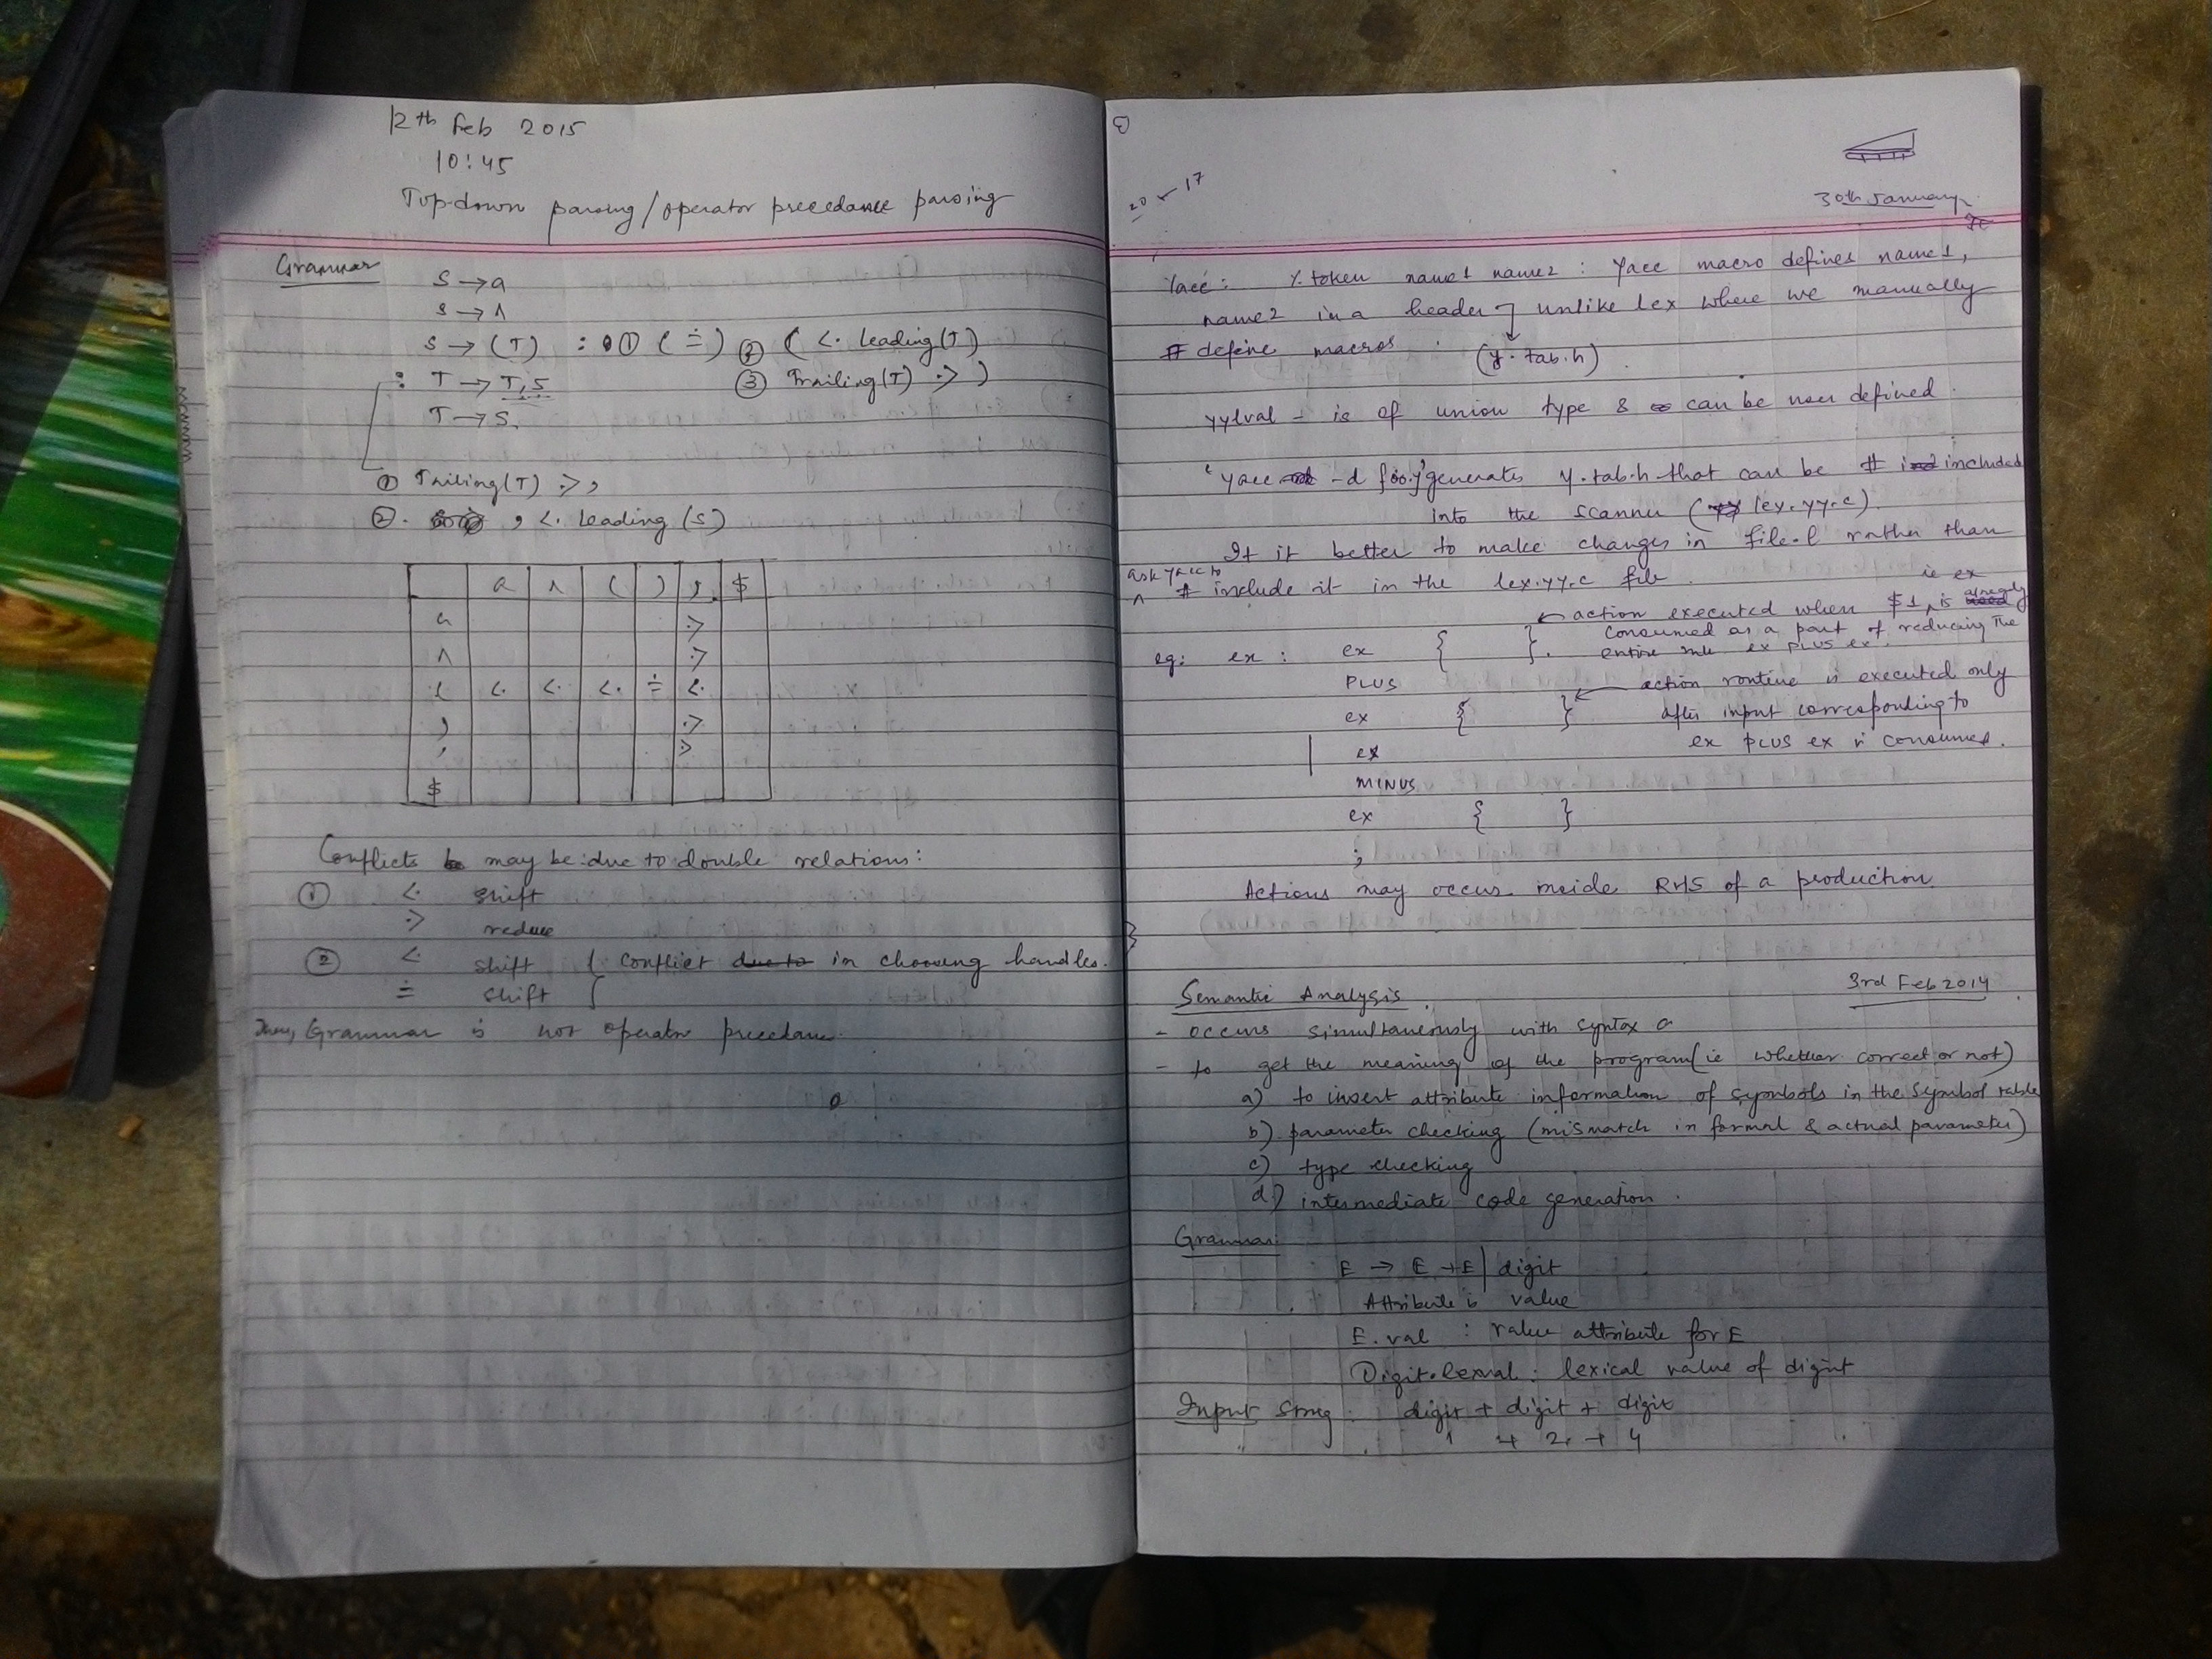 12th Feb 2015
10:45
Top-down parsing/operator precedance parsing
Grammar
S → a
S → ∧
S → (T) : ① ( ≐ ) ② ( <· leading(T)
: T → T,S ③ Trailing(T) ·> )
T → S.
① Trailing(T) ·> ,
②. , <· leading (S)
a ∧ ( ) , $
a ·>
∧ ·>
( <· <· <· ≐ <·
) ·>
, ·>
$
Conflicts may be due to double relations:
① <· shift
·> reduce
② <· shift { conflict due to in choosing handles.
≐ shift
Grammar is not operator precedance.
20 17
30th January
Yacc: % token name1 name2 : Yacc macro defines name1,
name2 in a header → unlike lex where we manually
# define macros. (y.tab.h)
yylval - is of union type & can be user defined.
'yacc -d foo.y' generates y.tab.h that can be # included
into the scanner (lex.yy.c).
It it better to make changes in file.l rather than
ask yacc to
∧ # include it in the lex.yy.c file.
ie ex
← action executed when $1 ∧ is already
eg: ex : ex { }. consumed as a part of reducing the
entire rule ex PLUS ex.
PLUS
ex { } ← action routine is executed only
after input corresponding to
ex PLUS ex is consumed.
| ex
MINUS
ex { }
;
Actions may occur inside RHS of a production
3rd Feb 2014
Semantic Analysis
- occurs simultaneously with syntax a
- to get the meaning of the program (ie whether correct or not)
a) to insert attribute information of symbols in the symbol table
b) parameter checking (mismatch in formal & actual parameter)
c) type checking
d) intermediate code generation.
Grammar:
E → E + E | digit
Attribute is value
E.val : value attribute for E
Digit.lexval : lexical value of digit
Input : digit + digit + digit
1 + 2 + 4